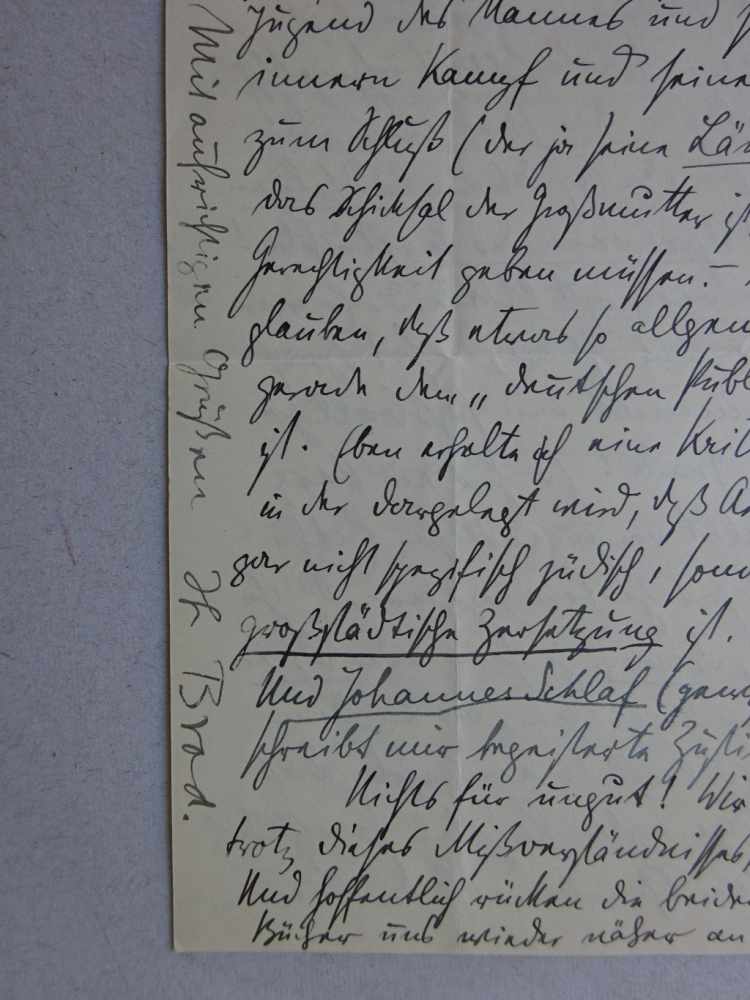 Jugend des Mannes und
innern Kampf und seine
zum Schluß (der ja seine Län
das Schicksal der Großmutter ist
Gerechtigkeit geben müssen. –
glauben, daß etwas so allgem
gerade dem „deutschen Publ
ist. Eben erhalte ich eine Krit
in der dargelegt wird, daß
gar nicht spezifisch jüdisch, son
großstädtische Zersetzung ist.
Und Johannes Schlaf (gew
schreibt mir begeisterte Zusti
Nichts für ungut! Wir
trotz dieses Mißverständnisses,
Und hoffentlich rücken die beiden
Bücher uns wieder näher an
Mit aufrichtigen Grüßen Ihr Brod.